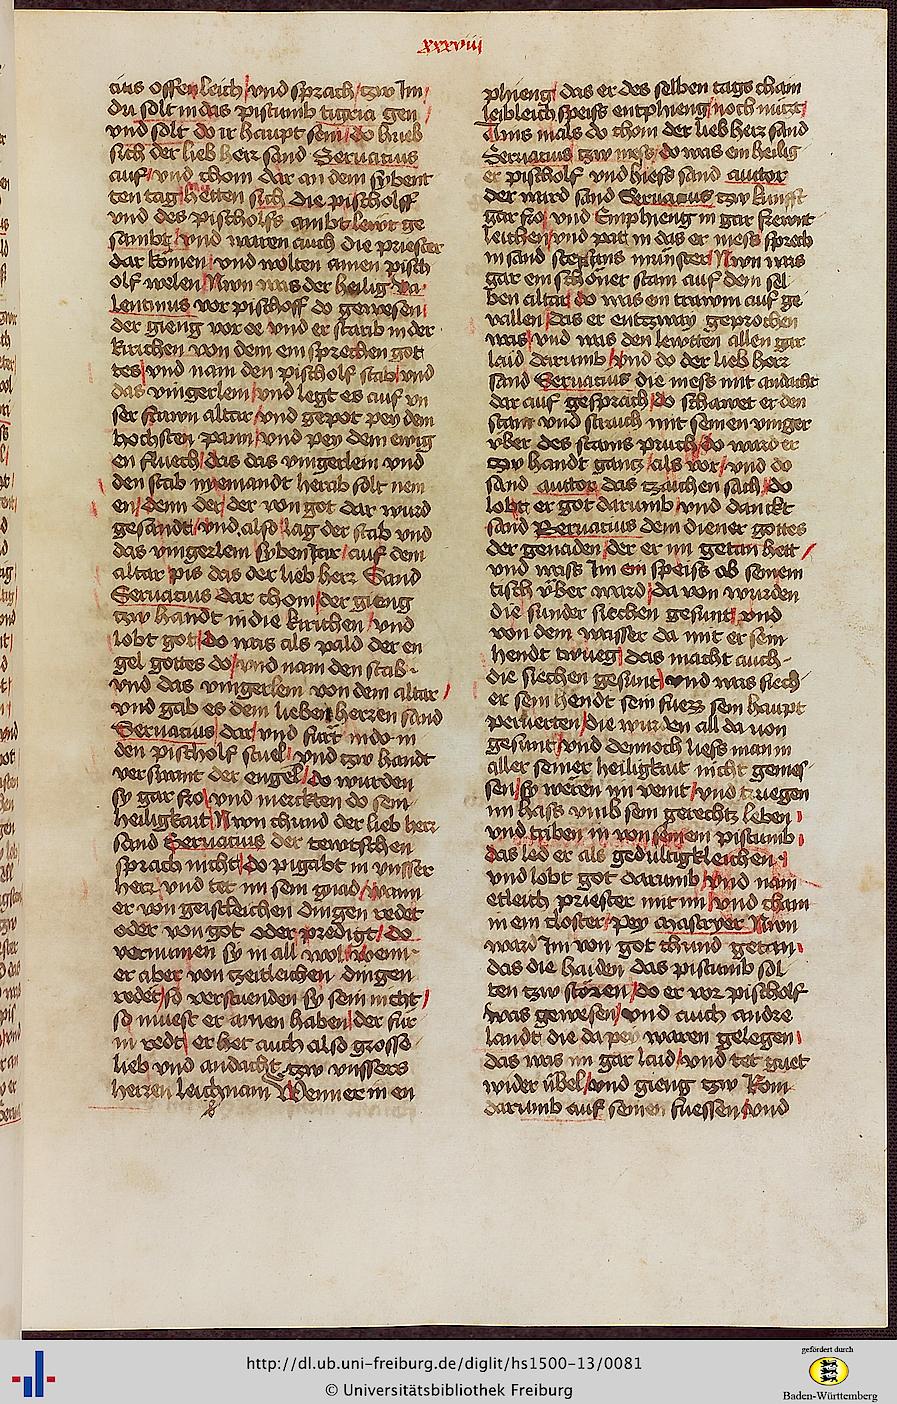 xxxviij
cius offenleich vnd sprach tzw Im
du solt in das pistumb tugria gen
vnd solt do ir haupt sein do hueb
sich der lieb herr sand Seruacius
auf vnd chom dar an dem sybent
ten tag hetten sich die pischolff
vnd des pischolfs ambtlewt ge
sambt vnd waren auch die priester
dar komen vnd wolten ainen pisch
olf welen Nwn was der heilig va
lentinus vor pischoff do gewesen
der gieng vor ee vnd er starb in der
kirichen von dem einsprechen got
tes vnd nam den pischolf stab vnd
das vingerlein vnd legt es auf vn
ser frawn altar vnd gepot pey dem
hochsten pann vnd pey dem ewig
en fluech das das vingerlein vnd
den stab nyemandt herab solt nem
en denn der der von got dar wurd
gesandt vnd also lag der stab vnd
das vingerlein syben Iar auf dem
altar pis das der lieb herr Sand
Seruacius dar chom der gieng
tzw handt in die kirichen vnd
lobt got do was als pald der en
gel gottes do vnd nam den stab
vnd das vingerlein von dem altar
vnd gab es dem lieben herren sand
Seruacius dar vnd furt in do in
den pischolf stuel vnd tzw handt
verswant der engel do wurden
sy gar fro vnd merckten do sein
heiligkait Nwn chund der lieb herr
sand Seruacius der tewtschen
sprach nicht do pegabt in vnser
herr vnd tet im sein gnad wann
er von geistleichen dingen redet
oder von got oder predigt do
vernamen sy in all wol wenn
er aber von tzeitleichen dingen
redet so verstuenden sy sein nicht
so muest er ainen haben der fur
in redt er het auch also grosse
lieb vnd andacht tzw vnsers
herren leichnam Wenn er in en
phieng das er des selben tags chain
leibleich speiss entphieng noch nützt
Ains mals do chom der lieb herr sand
Seruacius tzw mess do was ein heilig
er pischolf vnd hiess sand auctor
der ward sand Seruacius tzw kunfft
gar fro vnd Emphieng in gar frewnt
leichen vnd pat in das er mess sprech
in sand steffans münster Nwn was
gar ein schöner stain auf dem sel
ben altar do was ein trawm auf ge
vallen das er entzway geprochen
was vnd was den lewtten allen gar
laid darumb vnd do der lieb herr
sand Seruacius die mess mit andacht
dar auf gesprach do schawet er den
stain vnd straich mit seinen vinger
vber des stains pruch do ward er
tzw handt gantz als vor vnd do
sand auctor das tzaichen sach do
lobt er got darumb vnd danckt
sand Seruacius dem diener gottes
der genaden der er im getan hett
vnd wass Im ein speiss ob seinem
tisch vber ward da von wurden
die sunder siechen gesunt vnd
von dem wasser da mit er sein
hendt twueg das macht auch
die siechen gesunt vnd was siech
er sein hendt sein fuezz sein haupt
perurten die wurden all da von
gesunt vnd dennoch liess man in
aller seiner heiligkait nicht genies
sen sy waren im veint vnd truegen
im hass vmb sein gerechtz leben
vnd triben in von seinem pistumb
das led er als gedultigkleichen
vnd lobt got darumb vnd nam
etleich priester mit im vnd cham
in ein closter pey Mastryer Nwn
ward Im von got chund getan
das die haiden das pistumb sol
ten tzw stören do er vor pischolf
was gewesen vnd auch andre
landt die da pey waren gelegen
das was im gar laid vnd tet guet
wider übel vnd gieng tzw Rom
darumb auf seinen fuessen vnd
http://dl.ub.uni-freiburg.de/diglit/hs1500-13/0081
© Universitätsbibliothek Freiburg
gefördert durch
Baden-Württemberg